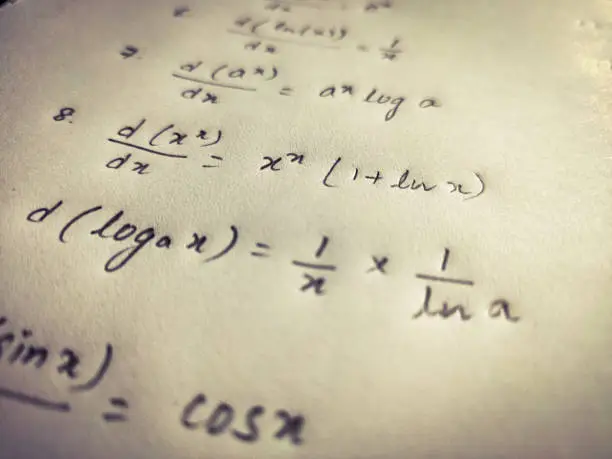 d(ln(x))/dx = 1/x
7. d(aˣ)/dx = aˣ log a
8. d(xˣ)/dx = xˣ (1 + ln x)
d(logₐ x) = 1/x × 1/ln a
sin x) = cos x